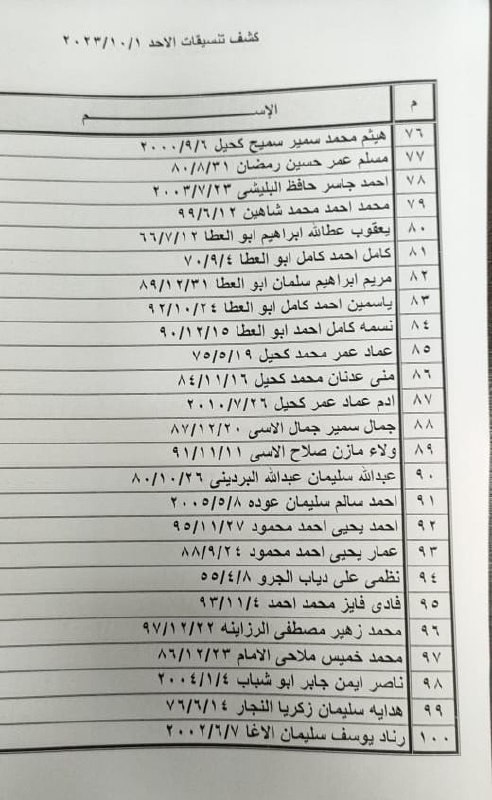 كشف تنسيقات الاحد ٢٠٢٣/١٠/١
م الإســـــم
٧٦ هيثم محمد سمير سميح كحيل ٢٠٠٠/٩/٦
٧٧ مسلم عمر حسين رمضان ٨٠/٨/٣١
٧٨ احمد جاسر حافظ البليشي ٢٠٠٣/٧/٢٣
٧٩ محمد احمد محمد شاهين ٩٩/٦/١٢
٨٠ يعقوب عطالله ابراهيم ابو العطا ٦٦/٧/١٢
٨١ كامل احمد كامل ابو العطا ٧٠/٩/٤
٨٢ مريم ابراهيم سلمان ابو العطا ٨٩/١٢/٣١
٨٣ ياسمين احمد كامل ابو العطا ٩٢/١٠/٢٤
٨٤ نسمه كامل احمد ابو العطا ٩٠/١٢/١٥
٨٥ عماد عمر محمد كحيل ٧٥/٥/١٩
٨٦ منى عدنان محمد كحيل ٨٤/١١/١٦
٨٧ ادم عماد عمر كحيل ٢٠١٠/٧/٢٦
٨٨ جمال سمير جمال الاسى ٨٧/١٢/٢٠
٨٩ ولاء مازن صلاح الاسى ٩١/١١/١١
٩٠ عبدالله سليمان عبدالله البرديني ٨٠/١٠/٢٦
٩١ احمد سالم سليمان عوده ٢٠٠٥/٥/٨
٩٢ احمد يحيى احمد محمود ٩٥/١١/٢٧
٩٣ عمار يحيى احمد محمود ٨٨/٩/٢٤
٩٤ نظمى على دياب الجرو ٥٥/٤/٨
٩٥ فادى فايز محمد احمد ٩٣/١١/٤
٩٦ محمد زهير مصطفى الرزاينه ٩٧/١٢/٢٢
٩٧ محمد خميس ملاحى الامام ٨٦/١٢/٢٣
٩٨ ناصر ايمن جابر ابو شباب ٢٠٠٤/١/٤
٩٩ هدايه سليمان زكريا النجار ٧٦/٦/١٤
١٠٠ رناد يوسف سليمان الاغا ٢٠٠٢/٦/٧